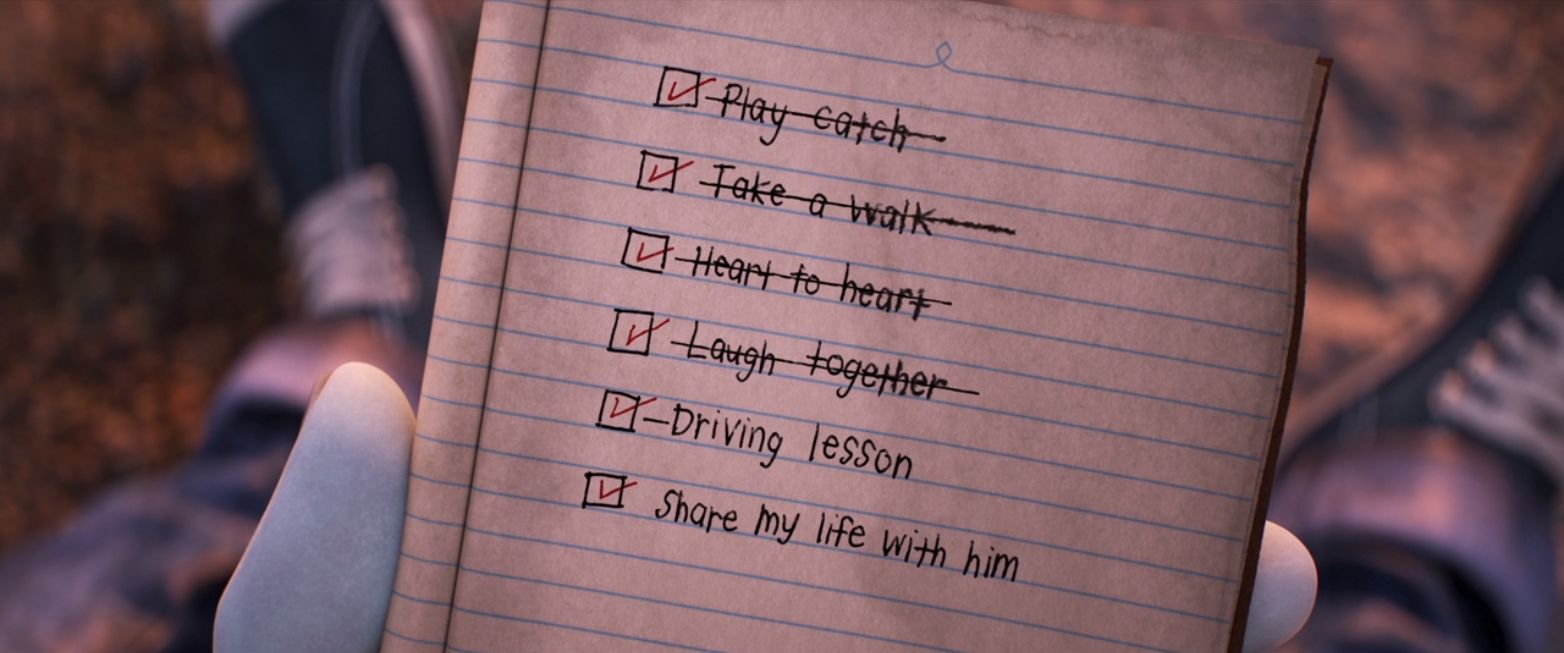 Play catch
Take a walk
Heart to heart
Laugh together
Driving lesson
Share my life with him